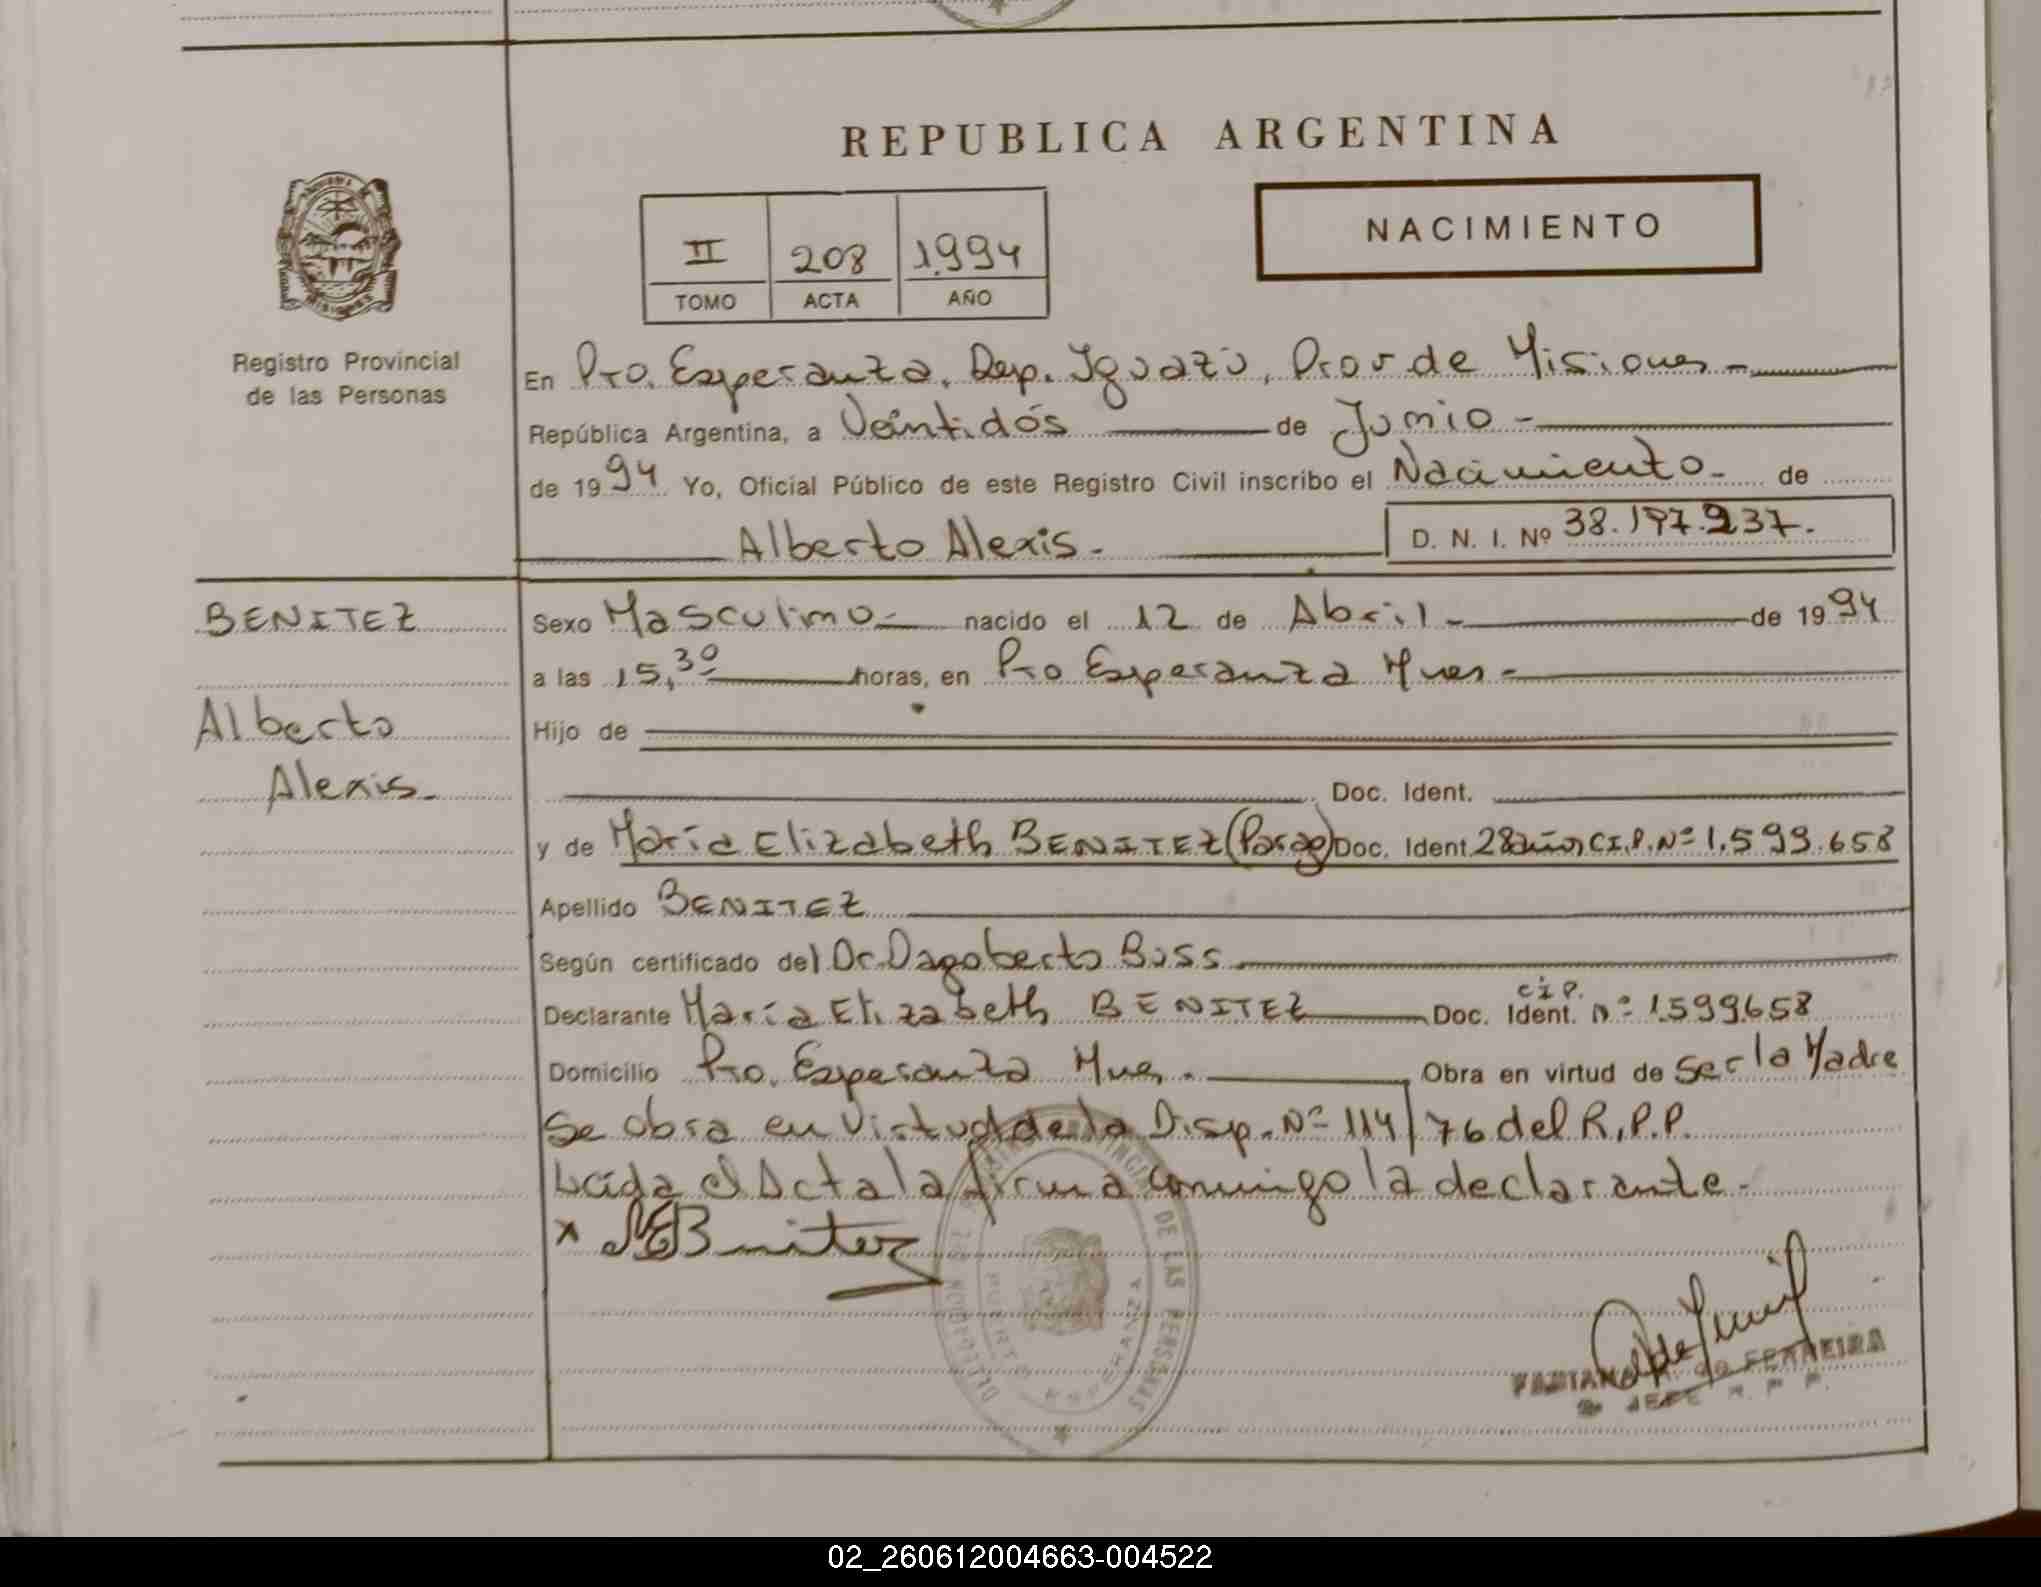 REPUBLICA ARGENTINA
NACIMIENTO
II 208 1.994
TOMO ACTA AÑO
Registro Provincial
de las Personas
En Pto. Esperanza, Dep. Iguazú, Prov de Misiones -
República Argentina, a Veintidós de Junio -
de 1994 Yo, Oficial Público de este Registro Civil inscribo el Nacimiento - de
Alberto Alexis - D. N. I. Nº 38.197.937.
BENITEZ
Alberto
Alexis -
Sexo Masculino - nacido el 12 de Abril - de 1994
a las 15,30 horas, en Pto Esperanza Mnes -
Hijo de
Doc. Ident.
y de María Elizabeth BENITEZ (Parag) Doc. Ident. 28 años C.I.P. Nº 1.599.658
Apellido BENITEZ
Según certificado del Dr. Dagoberto Boss
Declarante María Elizabeth BENITEZ Doc. Ident. C.I.P. nº 1.599.658
Domicilio Pto. Esperanza Mnes. Obra en virtud de ser la Madre
Se obra en virtud de la Disp. Nº 114/76 del R.P.P.
Leída el Acta la firma conmigo la declarante -
x MEBenitez
PUERTO ESPERANZA
DE LAS PERSONAS
FERREIRA
JEFE R. P. P.
02_260612004663-004522